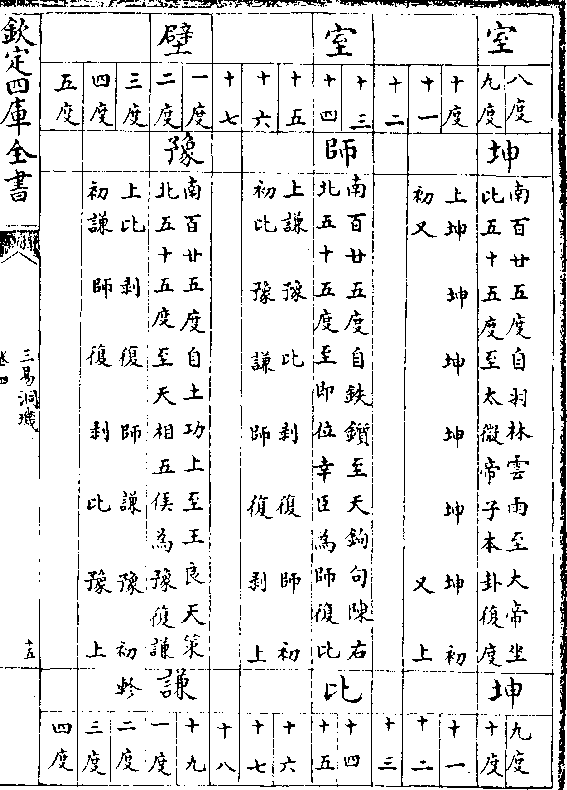 室
室
壁
八度
九度
十度
十一
十二
十三
十四
十五
十六
十七
一度
二度
三度
四度
五度
坤
師
豫
南百廿五度自羽林雲雨至大帝坐
北五十五度至太微帝子本卦復度
上坤坤坤坤坤坤初
初又又上
南百廿五度自鈇鑕至天鉤句陳右
北五十五度至即位幸臣為師復比
上謙豫比剥復師初
初比豫謙師復剥上
南百廿五度自土功上至王良天策
北五十五度至天相五侯為豫復謙
上比剥復師謙豫初
初謙師復剥比豫上
坤
比
謙
軫
九度
十度
十一
十二
十三
十四
十五
十六
十七
十八
十九
一度
二度
三度
四度
欽定四庫全書
三易洞璣
卷四
十五